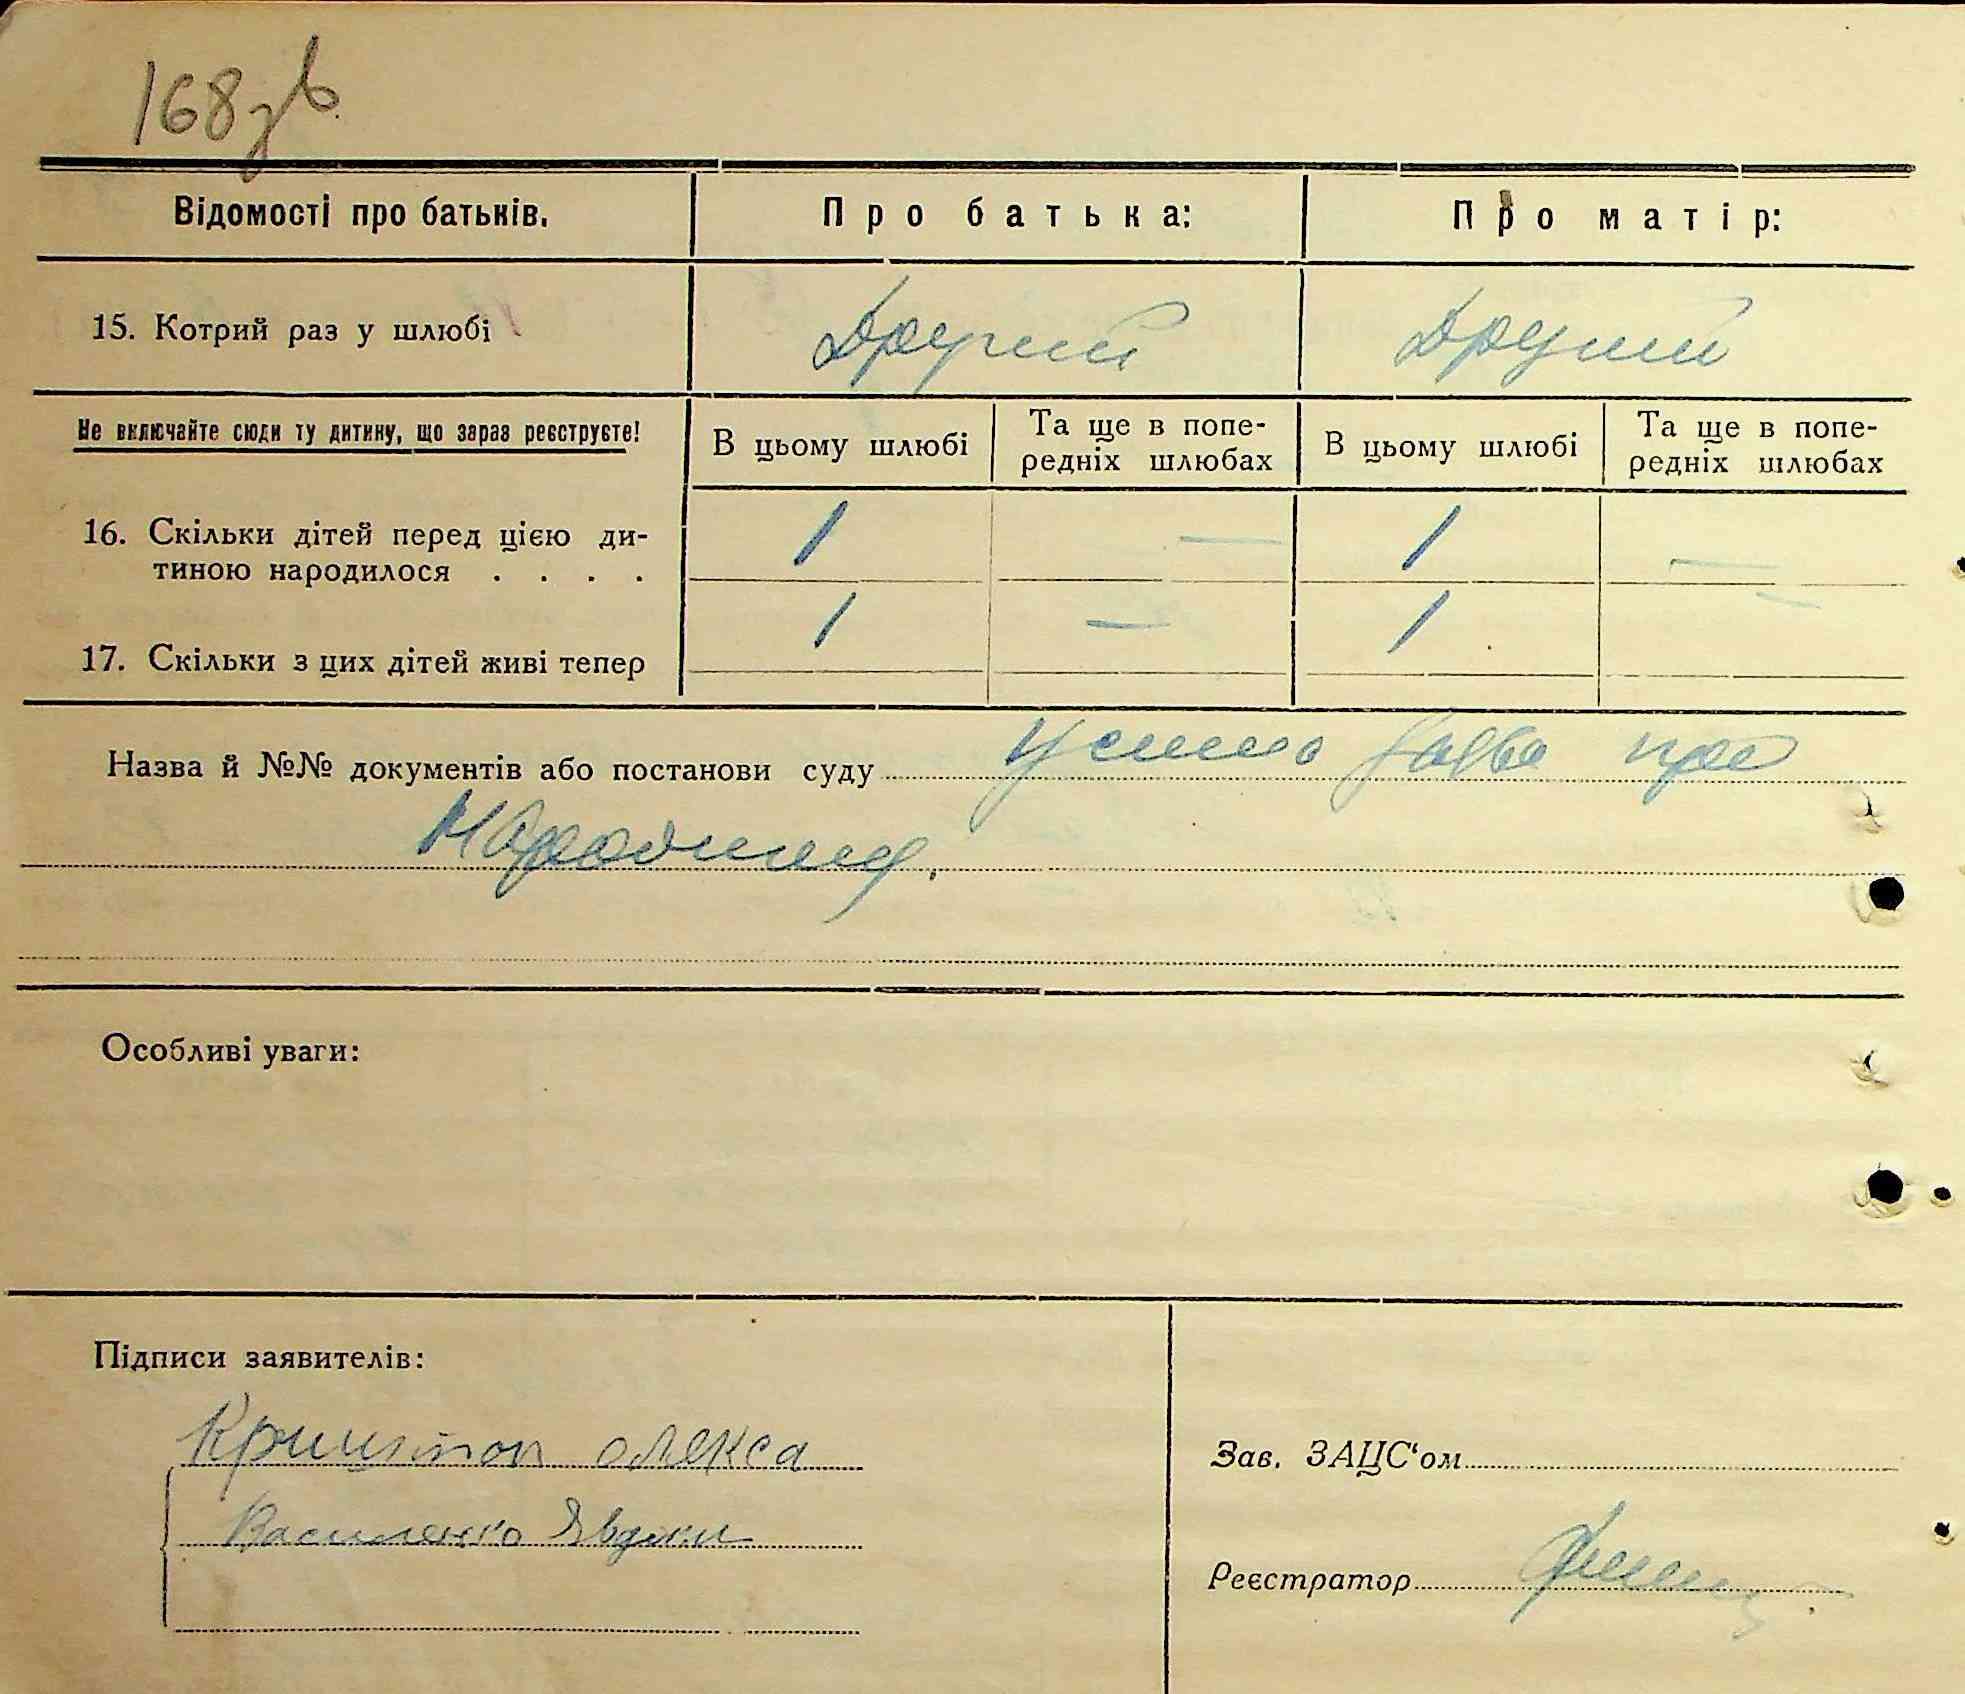 168зв
Відомості про батьків.
Про батька:
Про матір:
15. Котрий раз у шлюбі
Другий
Другий
Не включайте сюди ту дитину, що зараз реєструєте!
В цьому шлюбі
Та ще в попе-
редніх шлюбах
В цьому шлюбі
Та ще в попе-
редніх шлюбах
16. Скільки дітей перед цією ди-
тиною народилося . . . .
1 — 1 —
17. Скільки з цих дітей живі тепер
1 — 1 —
Назва й №№ документів або постанови суду Усна заява про
народження.
Особливі уваги:
Підписи заявителів:
Криштоп олекса
Василенко Явдоки
Зав. ЗАЦС'ом
Реєстратор